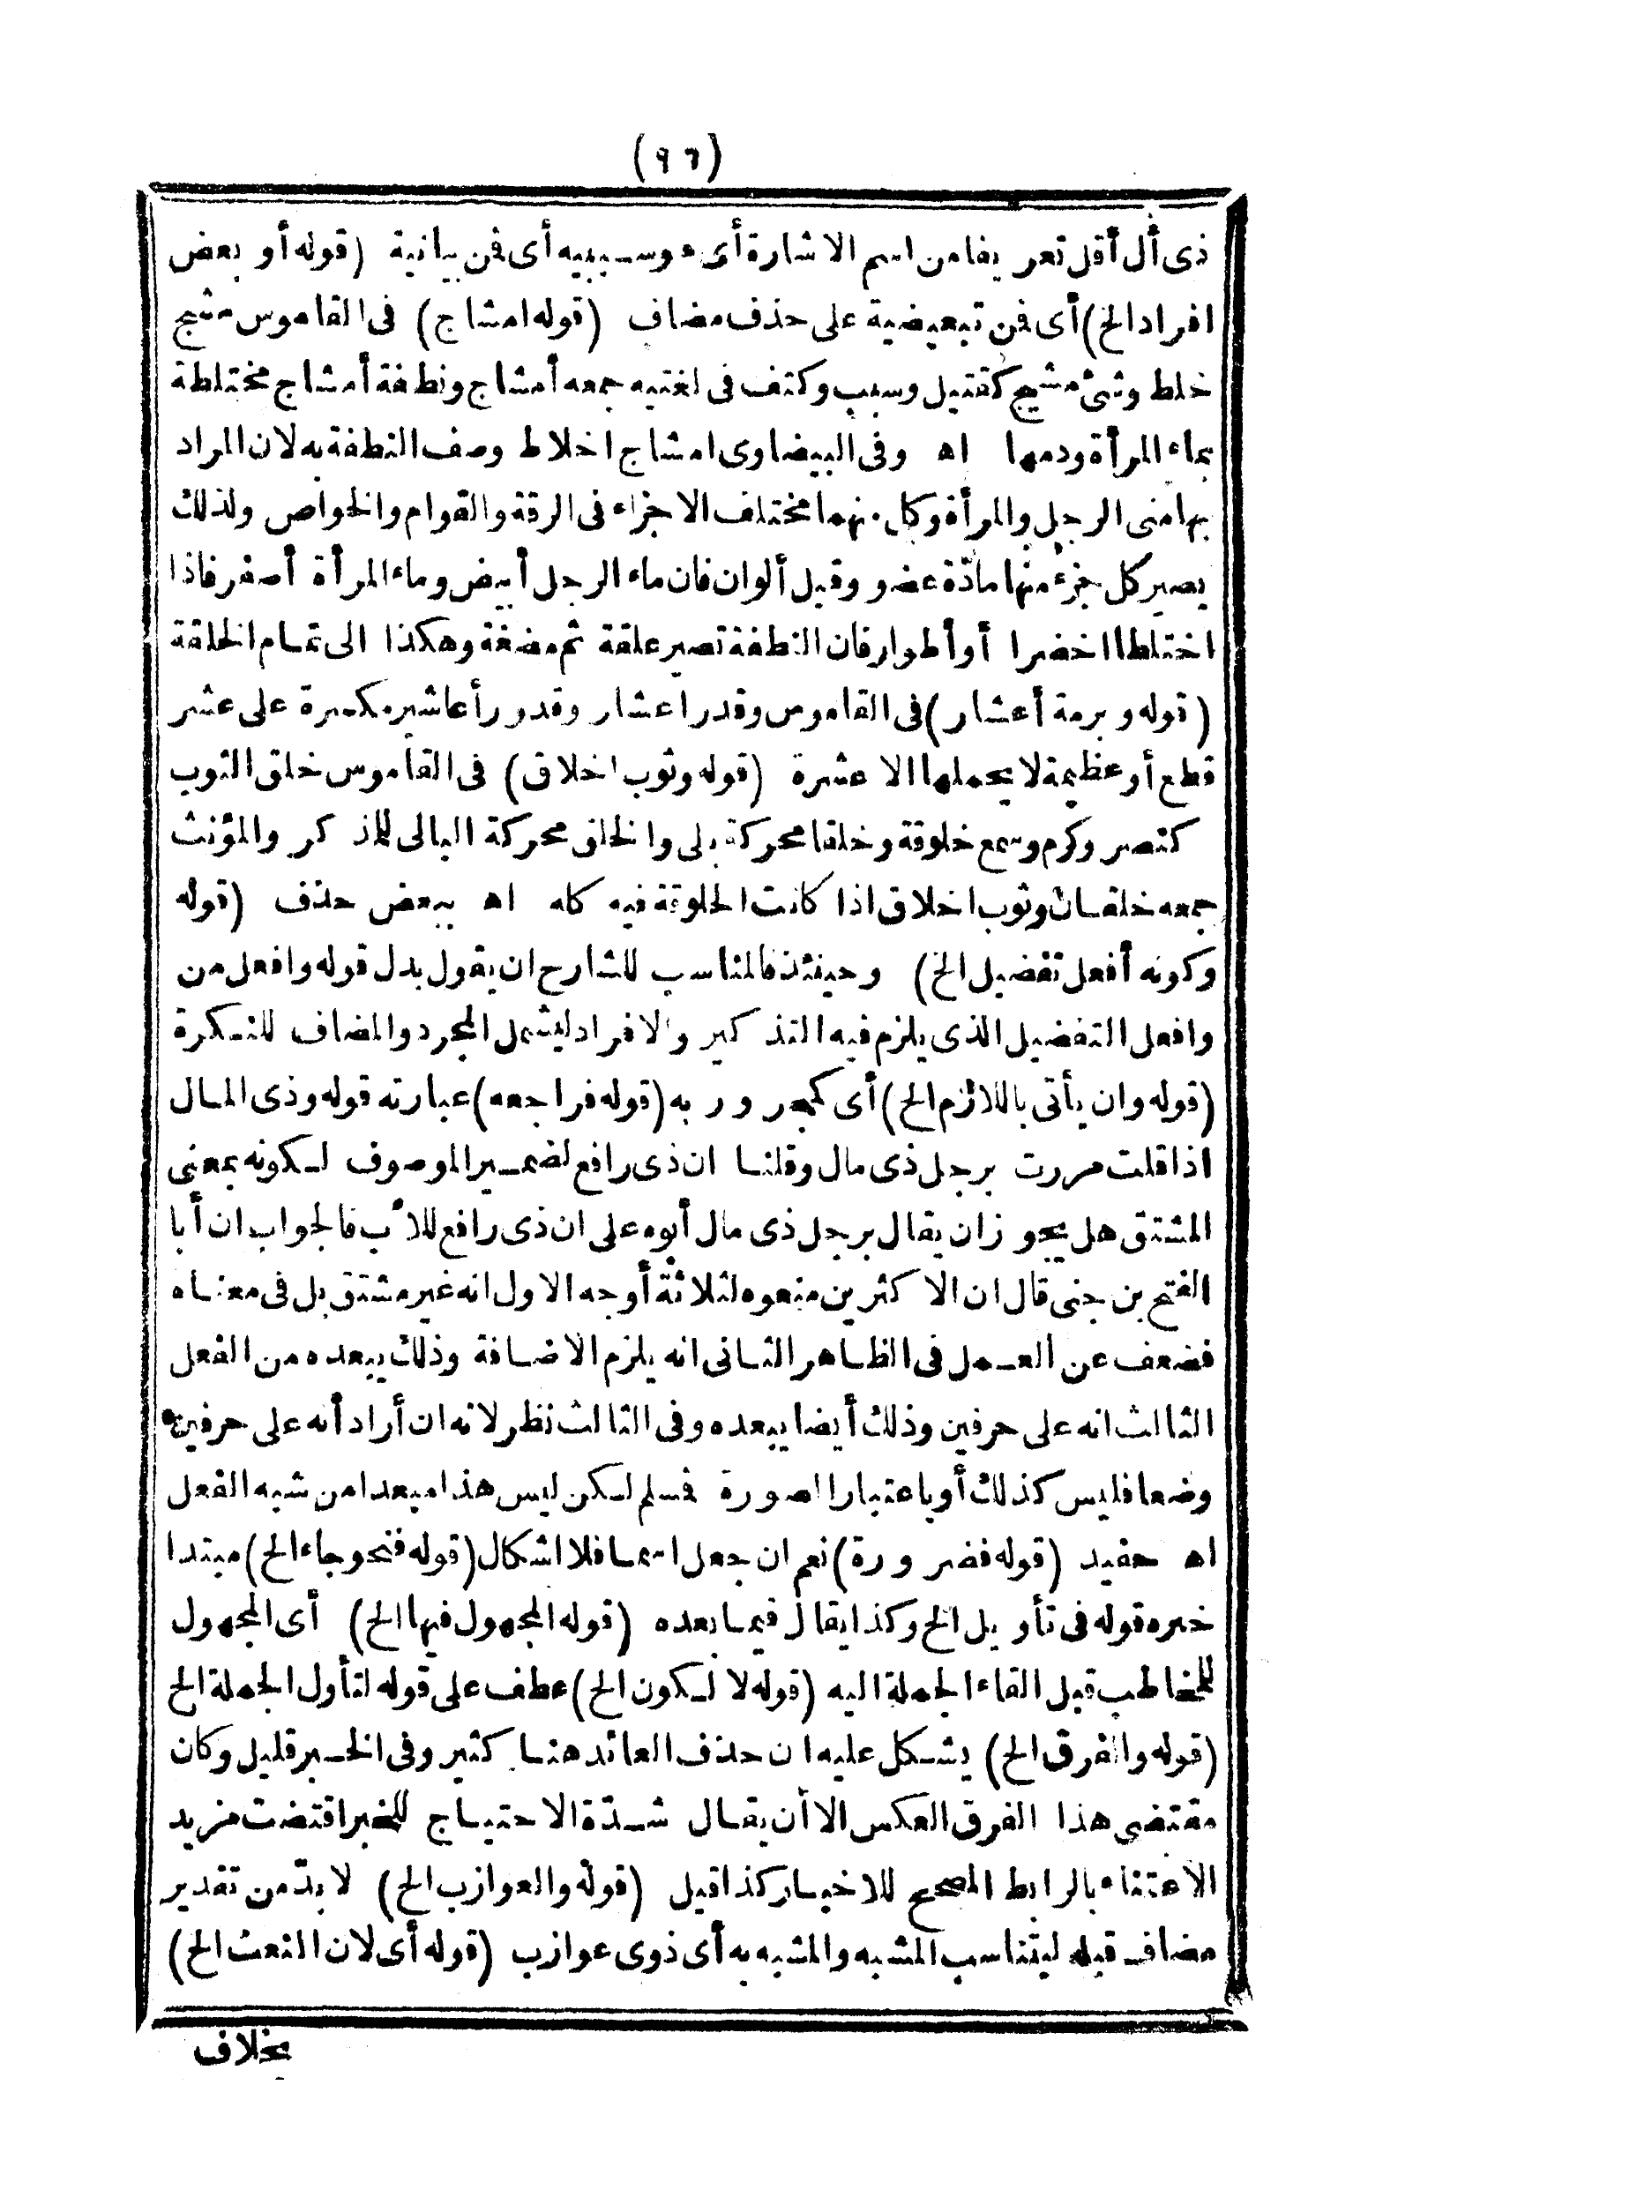 (٩٦)
ذى أل أقل تعريفا من اسم الاشارة أى وسببيه أى فن بيانية (قوله أو بعض
افراد الخ) أى فن تبعيضية على حذف مضاف (قوله امشاج) فى القاموس مشج
خلط وشئ مشيج كقتيل وسبب وكتف فى لغتيه جمعه أمشاج ونطفة أمشاج مختلطة
بماء المرأة ودمها اه وفى البيضاوى امشاج اخلاط وصف النطفة به لان المراد
بها منى الرجل والمرأة وكل منهما مختلف الاجزاء فى الرقة والقوام والخواص ولذلك
يصير كل جزء منها مادّة عضو وقيل ألوان فان ماء الرجل أبيض وماء المرأة أصفر فاذا
اختلطا اخضرا أو أطوار فان النطفة تصير علقة ثم مضغة وهكذا الى تمام الخلقة
(قوله وبرمة أعشار) فى القاموس وقدر اعشار وقدور أعاشير مكسرة على عشر
قطع أو عظيمة لا يحملها الا عشرة (قوله وثوب اخلاق) فى القاموس خلق الثوب
كنصر وكرم وسمع خلوقة وخلقا محركة بلى والخلق محركة البالى للمذكر والمؤنث
جمعه خلقان وثوب اخلاق اذا كانت الخلوقة فيه كله اه ببعض حذف (قوله
وكونه أفعل تفضيل الخ) وحينئذ فالمناسب للشارح ان يقول بدل قوله وافعل من
وافعل التفضيل الذى يلزم فيه التذكير والافراد ليشمل المجرد والمضاف للنكرة
(قوله وان يأتى باللازم الخ) أى كمجرور به (قوله فراجعه) عبارته قوله وذى المال
اذا قلت مررت برجل ذى مال وقلنا ان ذى رافع لضمير الموصوف لكونه بمعنى
المشتق هل يجوز ان يقال برجل ذى مال أبوه على ان ذى رافع للأب فالجواب ان أبا
الفتح بن جنى قال ان الاكثرين منعوه لثلاثة أوجه الاول انه غير مشتق بل فى معناه
فضعف عن العمل فى الظاهر الثانى انه يلزم الاضافة وذلك يبعده من الفعل
الثالث انه على حرفين وذلك أيضا يبعده وفى الثالث نظر لانه ان أراد أنه على حرفين
وضعا فليس كذلك أو باعتبار الصورة فسلم لكن ليس هذا مبعدا من شبه الفعل
اه حفيد (قوله فضرورة) نعم ان جعل اسما فلا اشكال (قوله فنحو جاء الخ) مبتدا
خبره قوله فى تأويل الخ وكذا يقال فيما بعده (قوله المجهول فيها الخ) أى المجهول
للمخاطب قبل القاء الجملة اليه (قوله لا لكون الخ) عطف على قوله لتأول الجملة الخ
(قوله والفرق الخ) يشكل عليه ان حذف العائد هنا كثير وفى الخبر قليل وكان
مقتضى هذا الفرق العكس الا أن يقال شدّة الاحتياج للخبر اقتضت مزيد
الاعتناء بالرابط المصحح للاخبار كذا قيل (قوله والعوازب الخ) لا بدّ من تقدير
مضاف قبله ليتناسب المشبه والمشبه به أى ذوى عوازب (قوله أى لان النعت الخ)
بخلاف